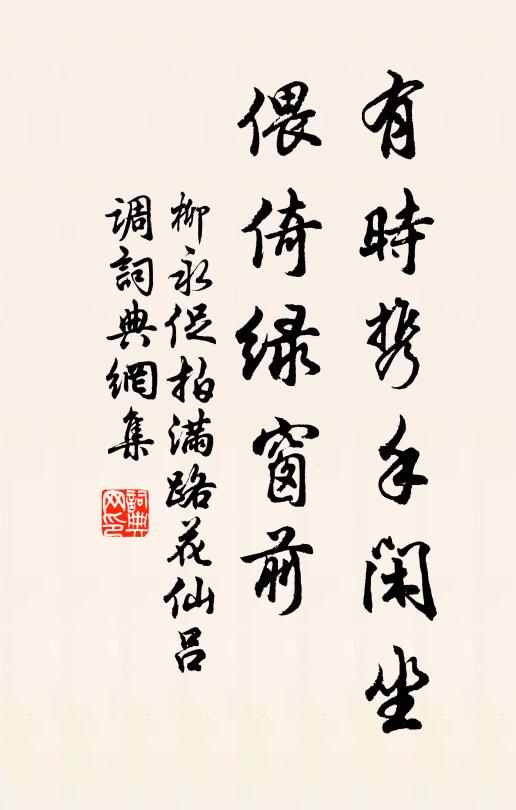 有時携手闲坐
偎倚緑窗前
柳永促拍满路花仙呂
调詞典網集
詞典
网印